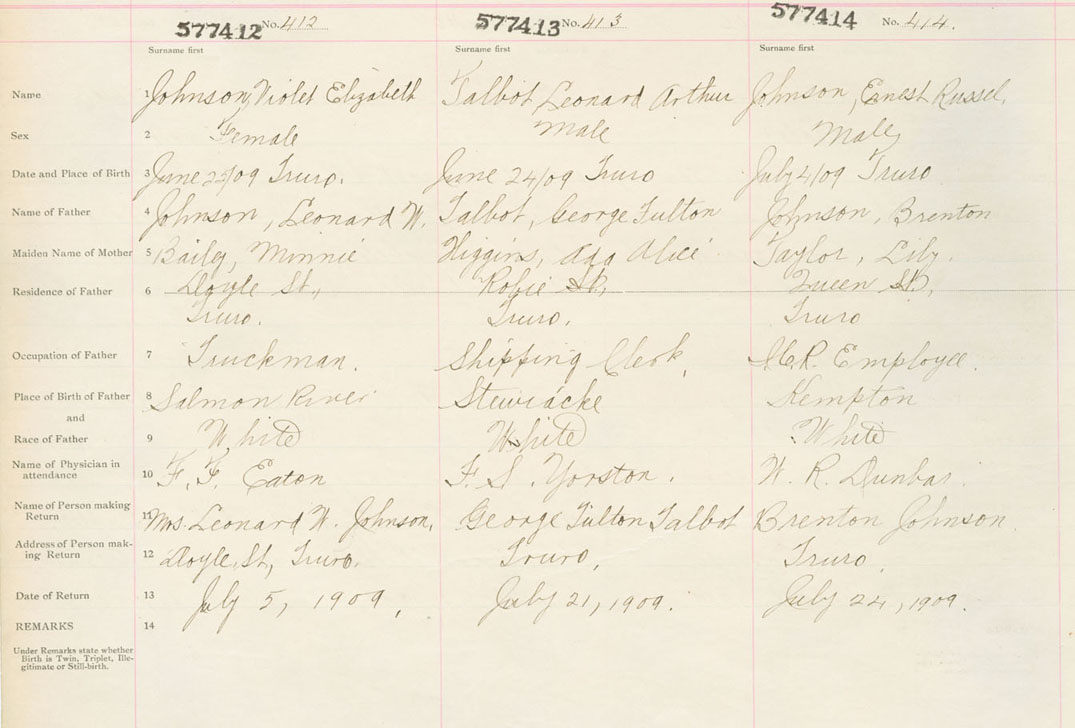 577412 No. 412 577413 No. 413 577414 No. 414.
Surname first Surname first Surname first
Name 1 Johnson, Violet Elizabeth Talbot Leonard Arthur Johnson, Ernest Russel.
Sex 2 Female Male Male
Date and Place of Birth 3 June 22/09 Truro. June 24/09 Truro July 4/09 Truro
Name of Father 4 Johnson, Leonard W. Talbot, George Fulton Johnson, Brenton
Maiden Name of Mother 5 Bailey, Minnie Higgins, Ada Alice Taylor, Lily.
Residence of Father 6 Doyle St., Robie St., Queen St.,
Truro. Truro. Truro
Occupation of Father 7 Truckman. Shipping Clerk. I.C.R. Employee.
Place of Birth of Father 8 Salmon River Stewiacke Kempton
and
Race of Father 9 White White White
Name of Physician in
attendance 10 F. F. Eaton F. S. Yorston. W. R. Dunbar.
Name of Person making
Return 11 Mrs. Leonard W. Johnson, George Fulton Talbot Brenton Johnson
Address of Person mak-
ing Return 12 Doyle St, Truro. Truro. Truro.
Date of Return 13 July 5, 1909, July 21, 1909. July 24, 1909.
REMARKS 14
Under Remarks state whether
Birth is Twin, Triplet, Ille-
gitimate or Still-birth.